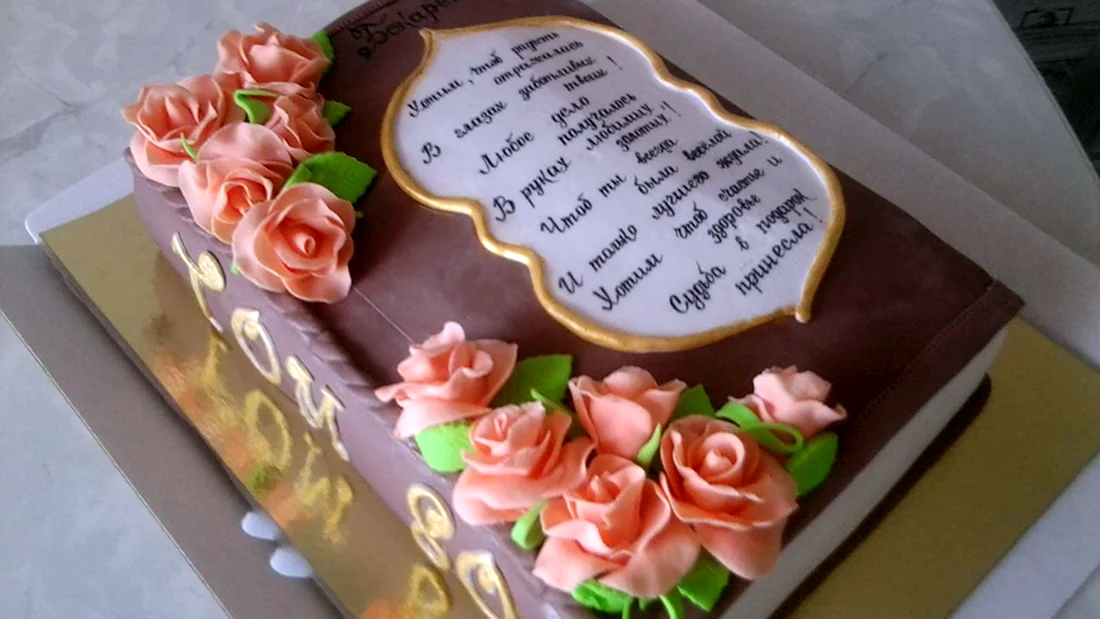 Хотим, чтоб радость
отражалась
В глазах заботливых
твоих!
Любое дело
получалось
В руках любимых
золотых!!
Чтоб ты везде
была весёлой
И только лучшего ждала!
Хотим чтоб счастье и
здоровье
Судьба в подарок
принесла!